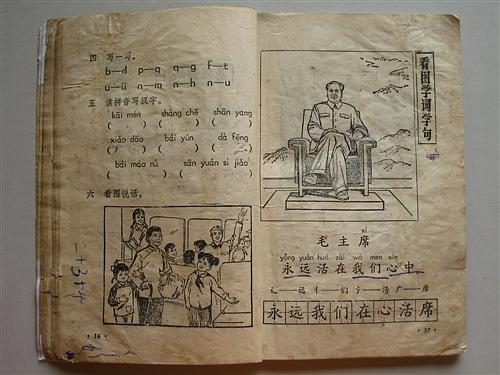 四 写一写。
b—d p—q q—g f—t
u—ü n—m n—h n—u
五 读拼音写汉字。
kāi mén shàng chē shān yang
( ) ( ) ( )
xiǎo dāo bái yún dà fēng
( ) ( ) ( )
bái máo nǚ sān yuán sì jiǎo
( ) ( )
六 看图说话。
·36·
看图学词学句
毛主席
xí
yǒng yuǎn huó zài wǒ men xīn
永远活在我们心中
辶—远 亻—们 氵—活 广—席
永远我们在心活席
·37·